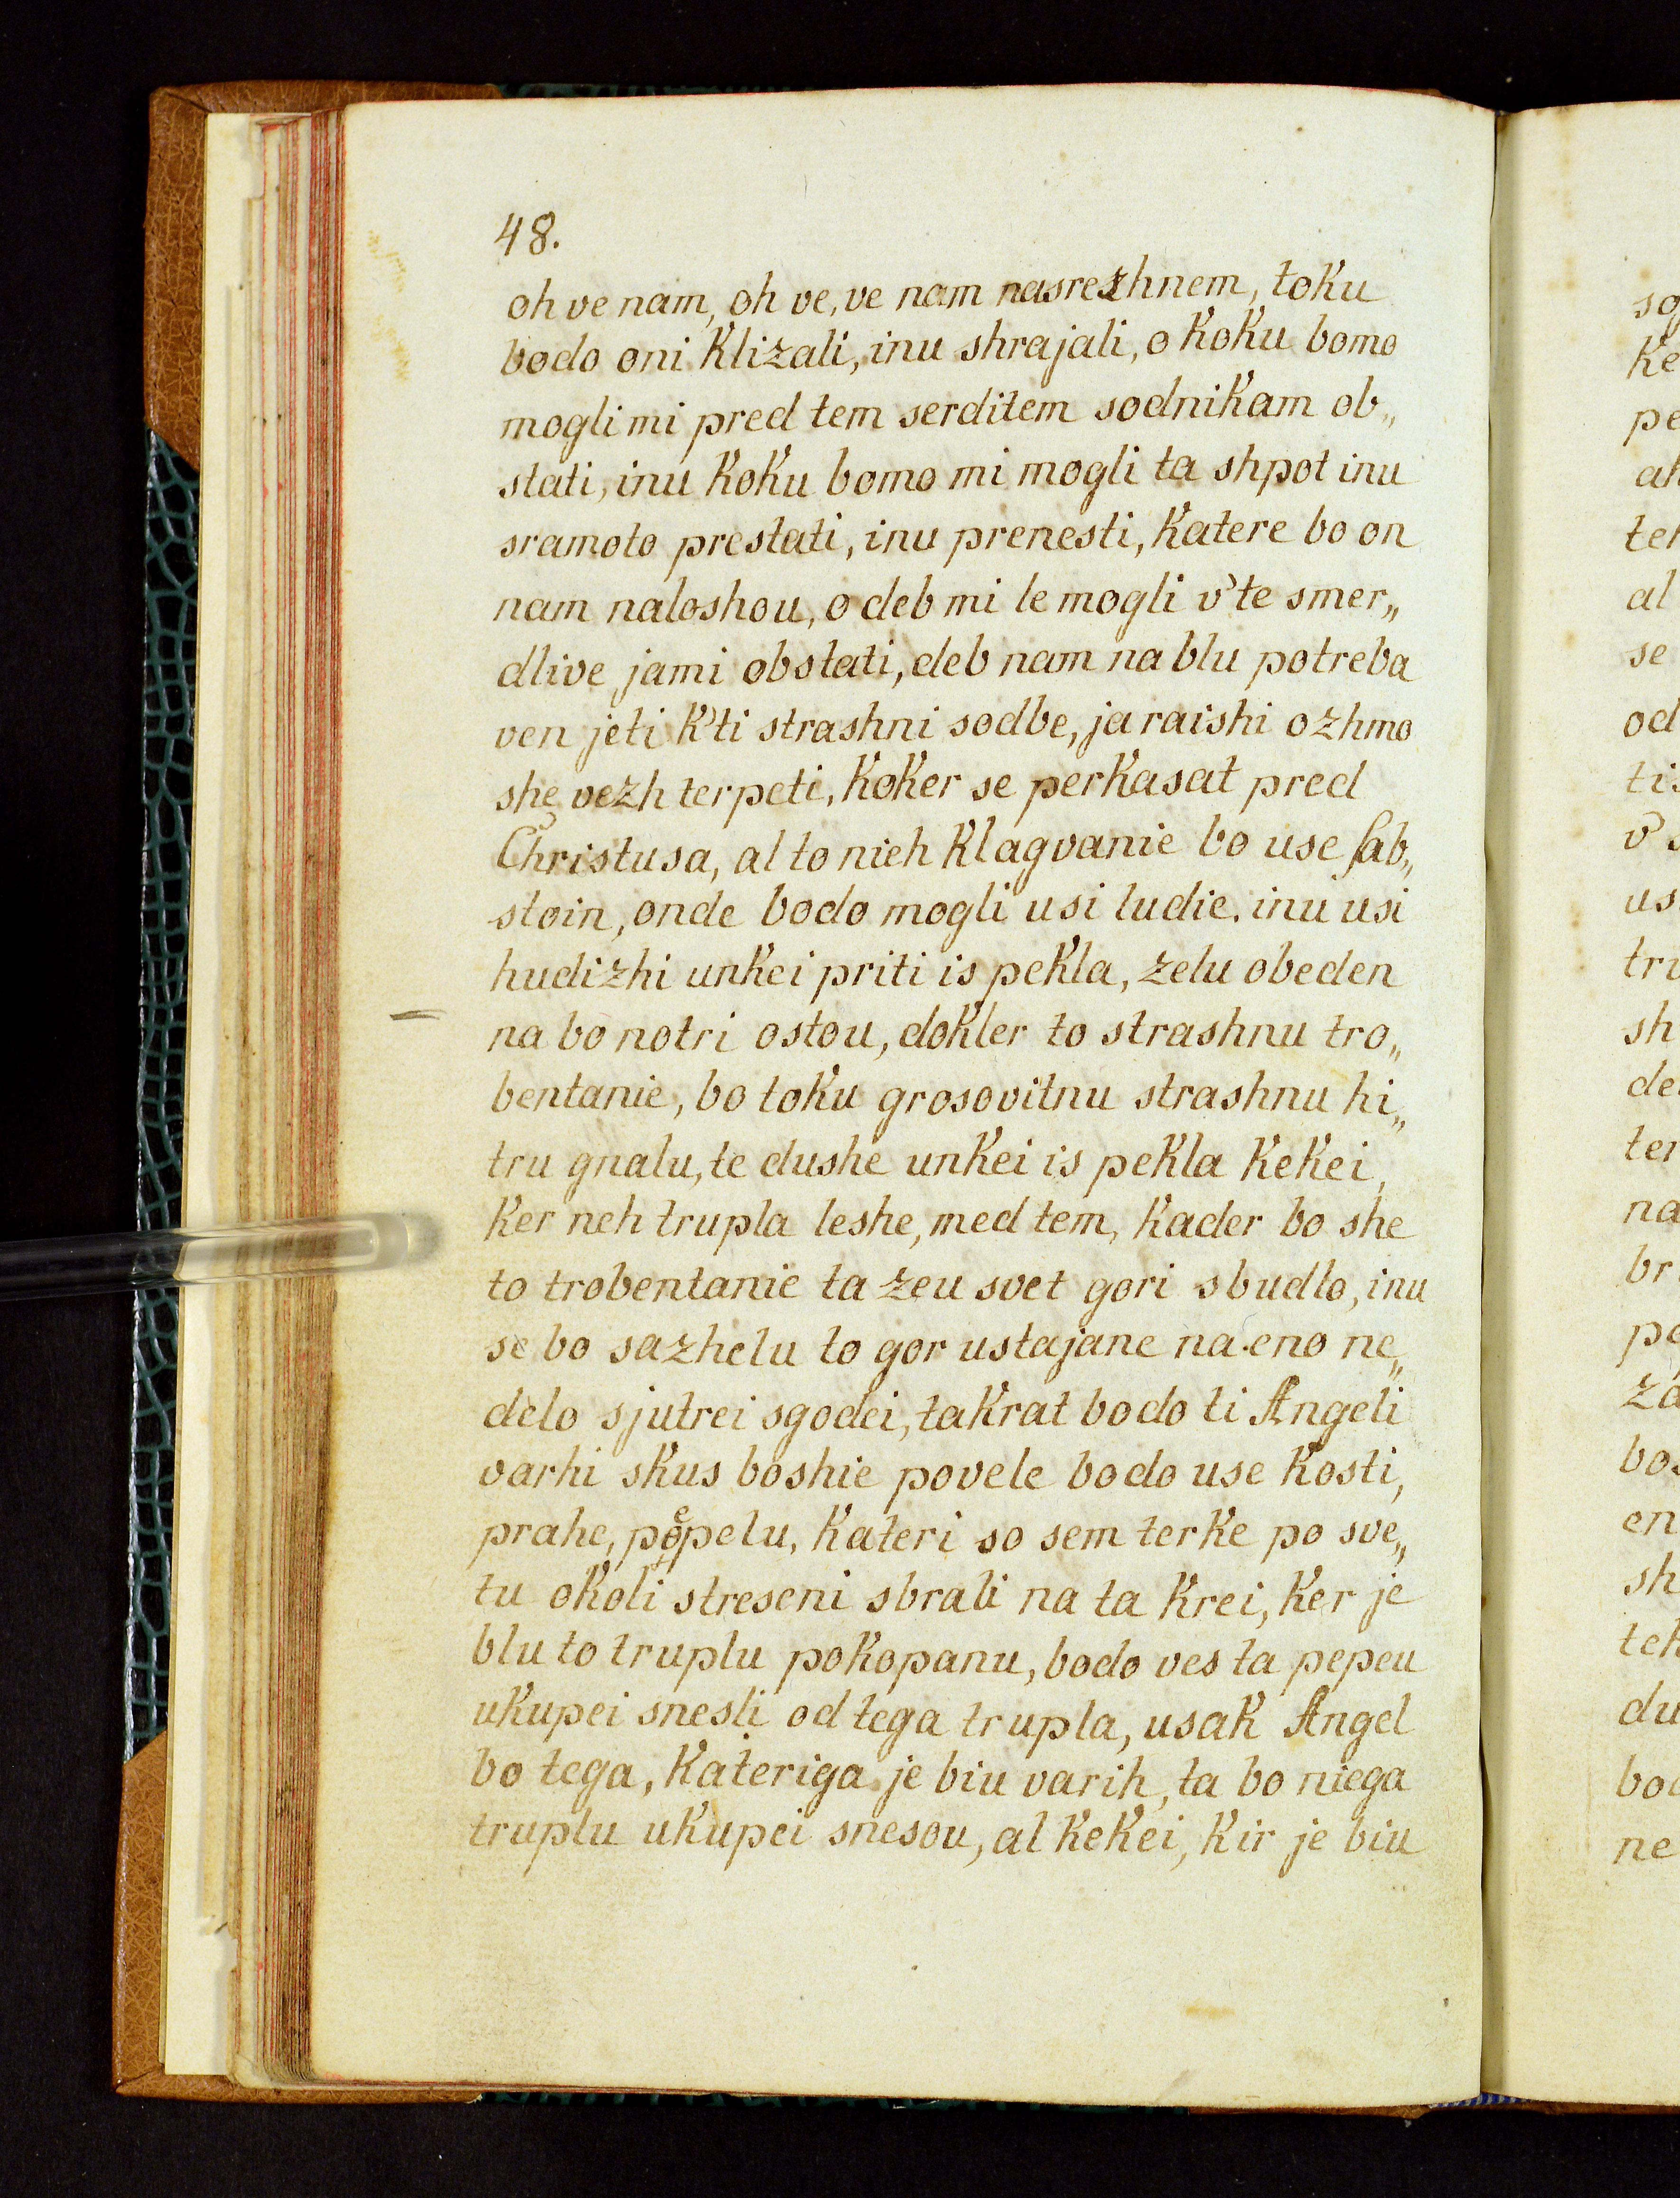 48.
oh ve nam, oh ve, ve nam nasrezhnem, toku
bodo oni klizali, inu shrajali, o koku bomo
mogli mi pred tem serditem sodnikam ob„
stati, inu koku bomo mi mogli ta shpot inu
sramoto prestati, inu prenesti, katere bo on
nam naloshou, o deb mi le mogli v'te smer„
dlive jami obstati, deb nam na blu potreba
ven jeti k'ti strashni sodbe, ja raishi ozhmo
she vezh terpeti, koker se perkasat pred
Christusa, al to nieh klagvanie bo use sab„
stoin, onde bodo mogli usi ludie, inu usi
hudizhi unkei priti is pekla, zelu obeden
na bo notri ostou, dokler to strashnu tro„
bentanie, bo toku grosovitnu strashnu hi„
tru gnalu, te dushe unkei is pekla kekei,
ker neh trupla leshe, med tem, kader bo she
to trobentanie ta zeu svet gori sbudlo, inu
se bo sazhelu to gor ustajane na eno ne„
delo sjutrei sgodei, takrat bodo ti Angeli
varhi skus boshie povele bodo use kosti,
prahe, pepelu, kateri so sem terke po sve„
tu okoli streseni sbrali na ta krei, ker je
blu to truplu pokopanu, bodo ves ta pepeu
ukupei snesli od tega trupla, usak Angel
bo tega, kateriga je biu varih, ta bo niega
truplu ukupei snesou, al kekei, kir je biu